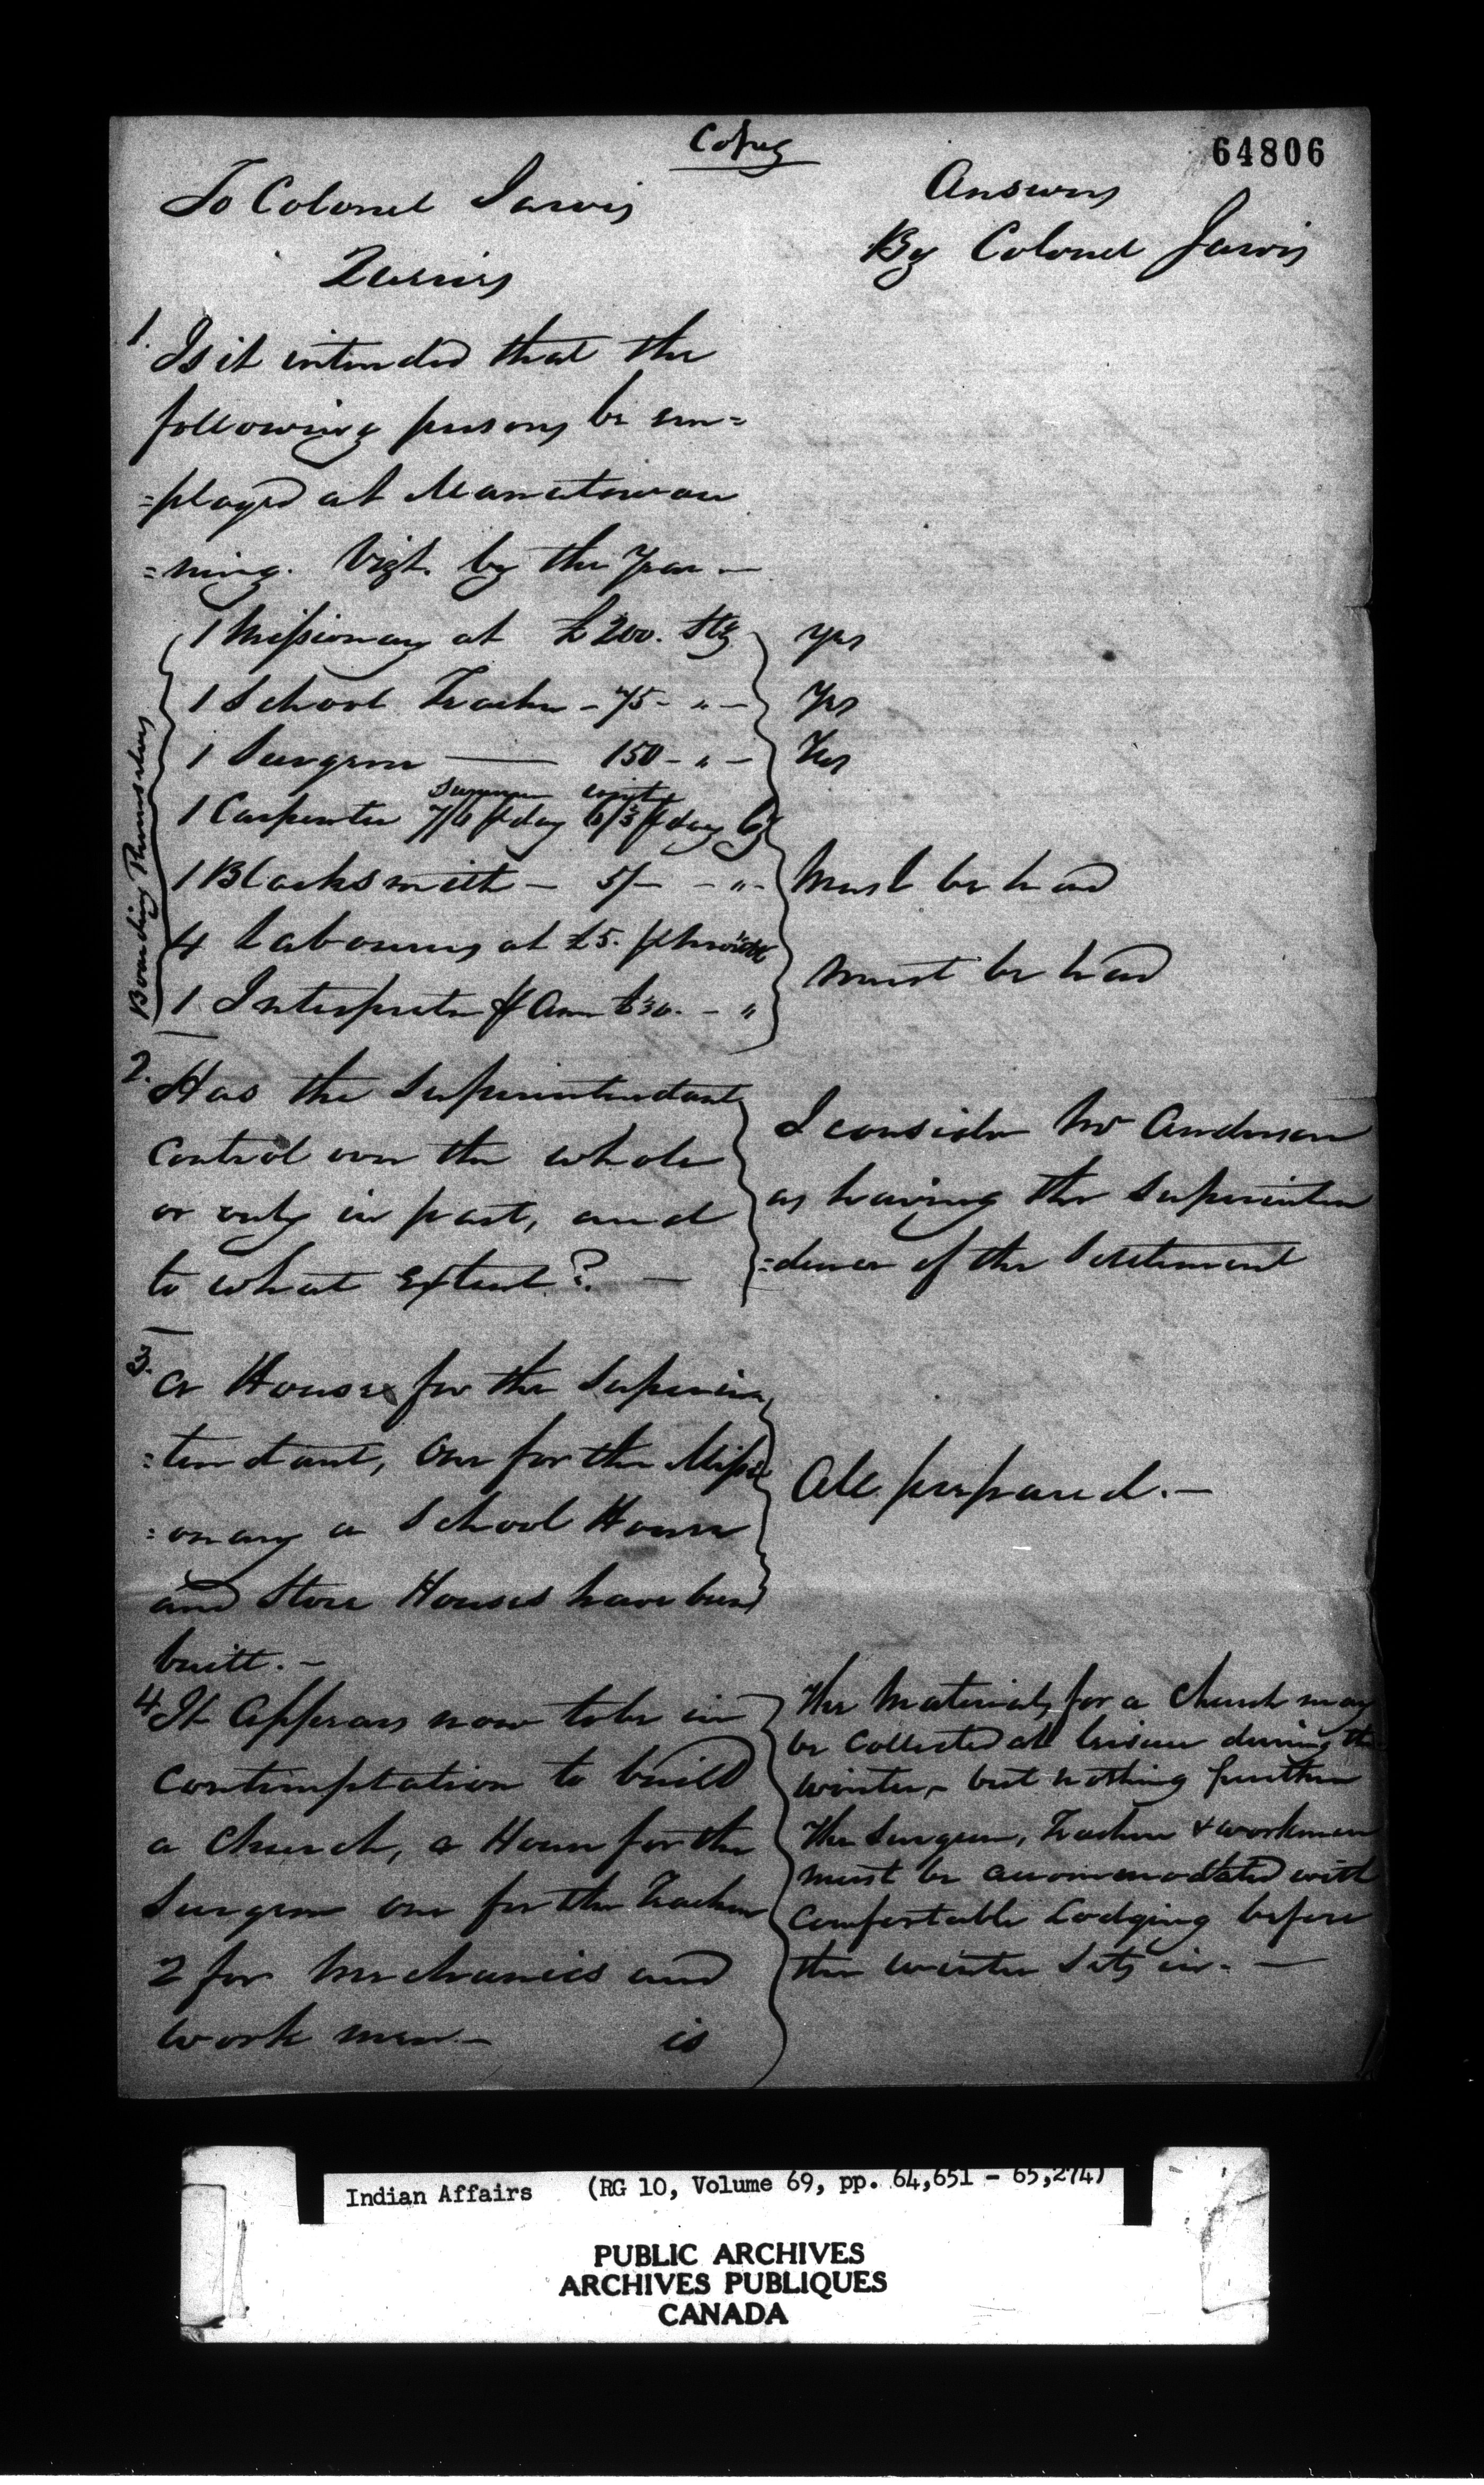 Copy
64806
To Colonel Jarvis
Queries
Answers
By Colonel Jarvis
1. Is it intended that the
following persons be em=
=ployed at Manatowau
=ning. Vizt. by the Year —
Boarding Themselves
1 Missionary at £200. Stg
Yes
1 School Teacher - 75 - " -
Yes
1 Surgeon — 150 - " -
Yes
Summer winter
1 Carpenter 7/6 p day 6/3 p day Cy
1 Blacksmith - 5/- - " -
Must be had
4 Labourers at £5. p
must be had
1 Interpreter p Ann £30. - "
2. Has the Superintendant
control over the whole
or only in part, and
to what Extent? —
I consider Mr Anderson
as having the Superinten
=dence of the Settlement
3. A House for the Superin
=tendant, One for the Missi
=onary a School House
and Store Houses have been
built. -
All prepared. -
4 It Appears now to be in
Contemplation to build
a Church, a House for the
Surgeon one for the Teacher
2 for Mechanics and
work men - is
The Materials for a Church may
be Collected at leisure during the
winter, but nothing further
The Surgeon, Teacher & workmen
must be accommodated with
Comfortable Lodging before
the winter sets in. —
Indian Affairs (RG 10, Volume 69, pp. 64,651 - 65,274)
PUBLIC ARCHIVES
ARCHIVES PUBLIQUES
CANADA